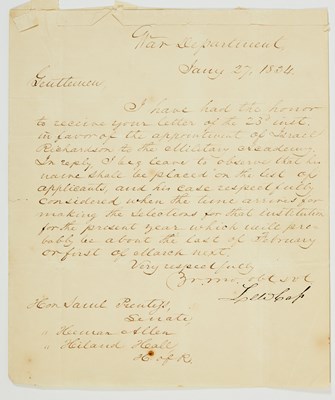 War Department,
Jany 27, 1834.
Gentlemen
I have had the honor
to receive your letter of the 23d inst.
in favor of the appointment of Israel
Richardson to the Military Academy.
In reply I beg leave to observe that his
name shall be placed on the list of
applicants, and his case respectfully
considered when the time arrives for
making the selections for that institution
for the present year which will pro-
bably be about the last of February
or first of March next.
Very respectfully
Yr. mo. obt svt
Lew Cass
Hon Saml Prentiss,
Senate,
" Heman Allen
" Hiland Hall
H. of R.